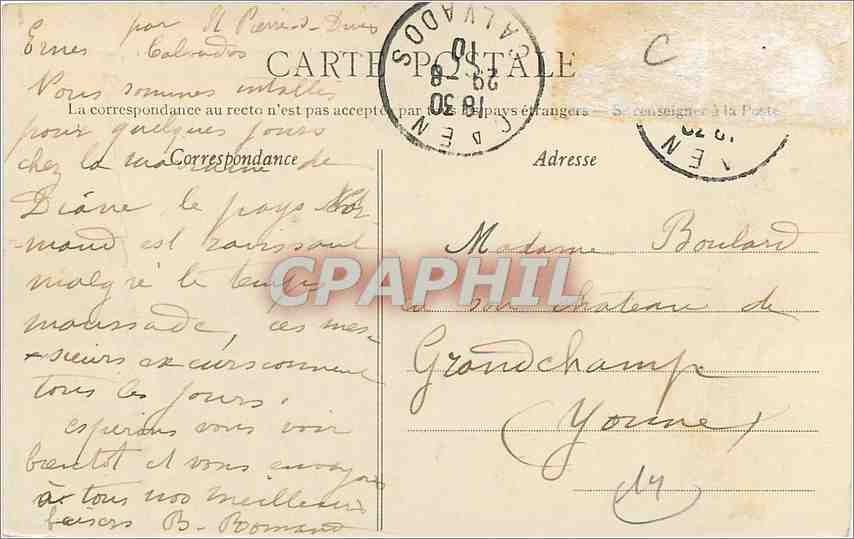 par St Pierre-s-Dives
Ernes Calvados
CARTE POSTALE
La correspondance au recto n'est pas acceptée par tous les pays étrangers — Se renseigner à la Poste
CAEN
18 30
29 -8
10
CALVADOS
C
AEN
Correspondance
Nous sommes installés
pour quelques jours
chez la de
Diane le pays Nor-
mand est ravissant
malgré le temps
maussade, ces mes-
sieurs excursionnent
tous les jours.
espérons vous voir
bientôt et vous envoyons
à tous nos meilleurs
baisers B. Romand
Adresse
Madame Boulard
en son château de
Grandchamp
Yonne
14
CPAPHIL